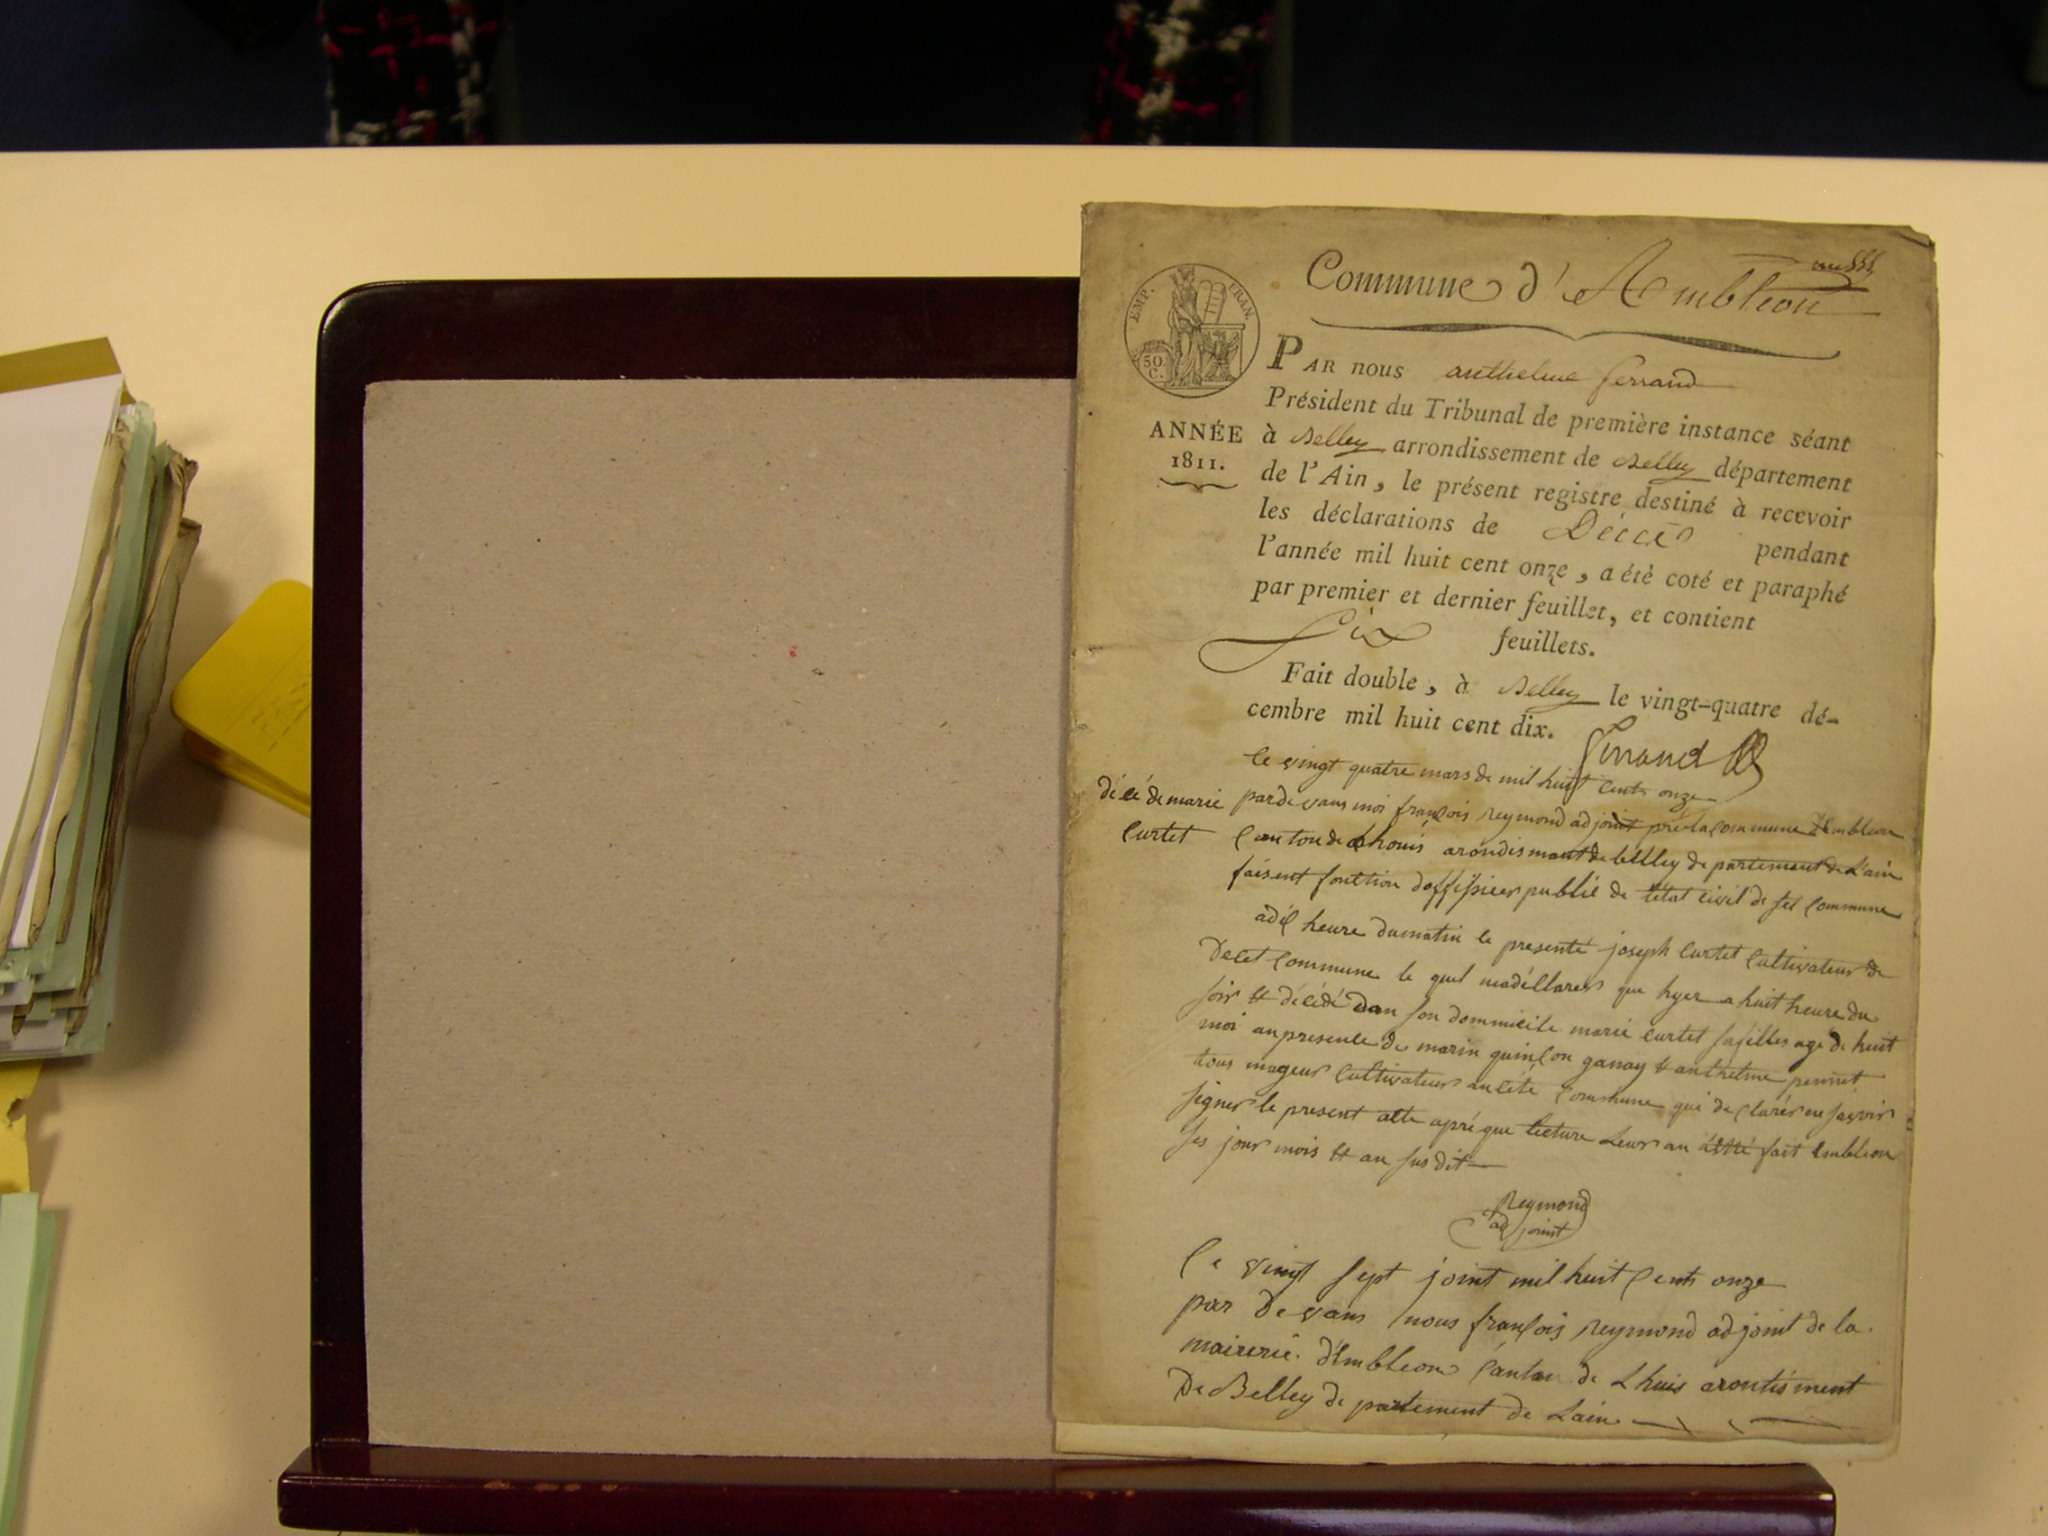 Commune d'Ambléon
EMP. FRAN.
50 C.
PAR nous anthelme ferrand
Président du Tribunal de première instance séant
ANNÉE
1811.
à Belley arrondissement de Belley département
de l'Ain, le présent registre destiné à recevoir
les déclarations de Décès pendant
l'année mil huit cent onze, a été coté et paraphé
par premier et dernier feuillet, et contient
six feuillets.
Fait double, à Belley le vingt-quatre dé-
cembre mil huit cent dix.
ferrand
le vingt quatre mars de mil huit cents onze
décé de marie
curtet
par de vans moi françois reymond adjoint la commune d'Embleon
Canton de Lhouis arondismant de belley de partement de L'ain
faisent fonction doffissier publié de létat civil de set commune
adix heure du matin le presenté joseph curtet Cultivateur de
De cet Commune le quel madéllares que hyer a huit heure du
soir et décédé dan son dommicile marie curtet sa filles age de huit
moi an presence de marin quinson ganay et anthelme pennet
tous mageur Cultivateur an cété Commune qui de clarér ne savoir
signer le present atte apré que lecture Leur an étté fait Embleon
les jour mois et an sus dit
Reymond
adjoint
Ce vingt sept joint mil huit Cents onze
par De vans nous françois reymond adjoint de la
mairerie d'Embleon Canton de Lhuis arontisment
De Belley de partement de Lain